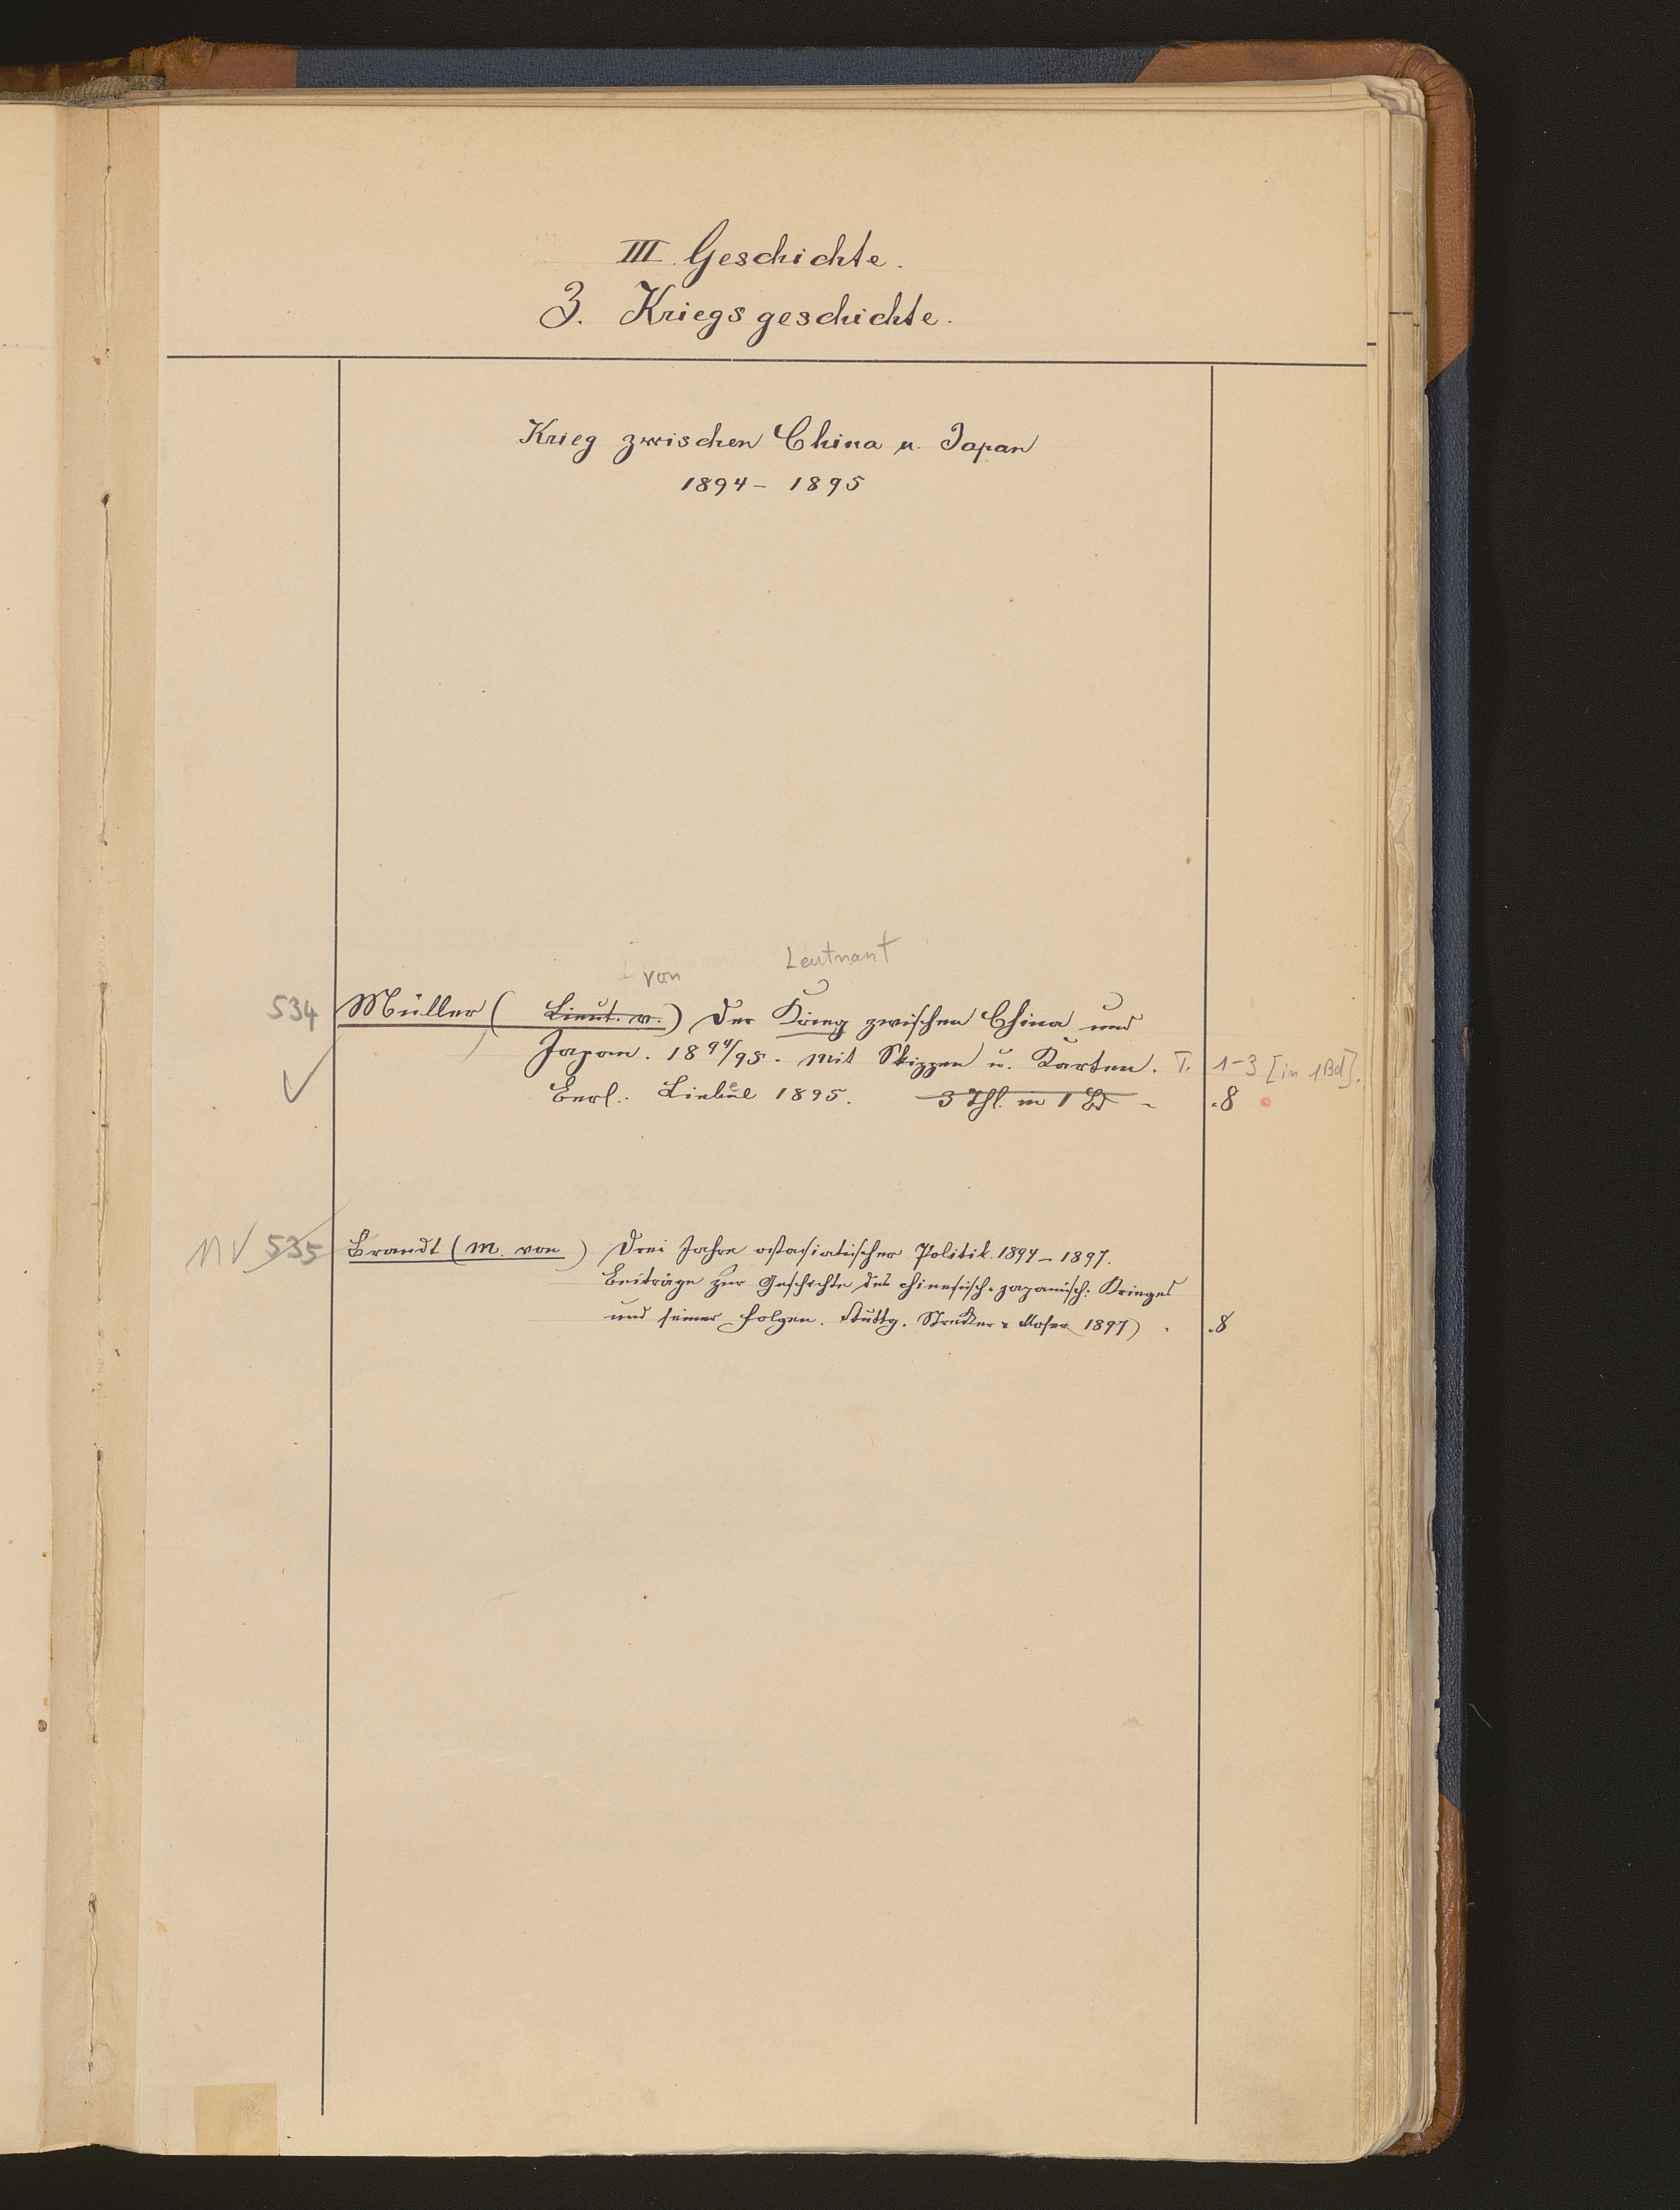 III. Geschichte.
3. Kriegsgeschichte.
Krieg zwischen China u. Japan
1894 - 1895
von Leutnant
534 Müller (Lieut. v.) Der Krieg zwischen China und
Japan. 1894/95. Mit Skizzen u. Karten. T. 1-3 [in 1 Bd].
Berl. Liebel 1895. 3 Thl. in 1 Bd - .8
NV 535 Brandt (M. von) Drei Jahre ostasiatischer Politik. 1894-1897.
Beiträge zur Geschichte des chinesisch-japanisch: Krieges
und seiner Folgen. Stuttg. Strecker & Moser 1897) . .8